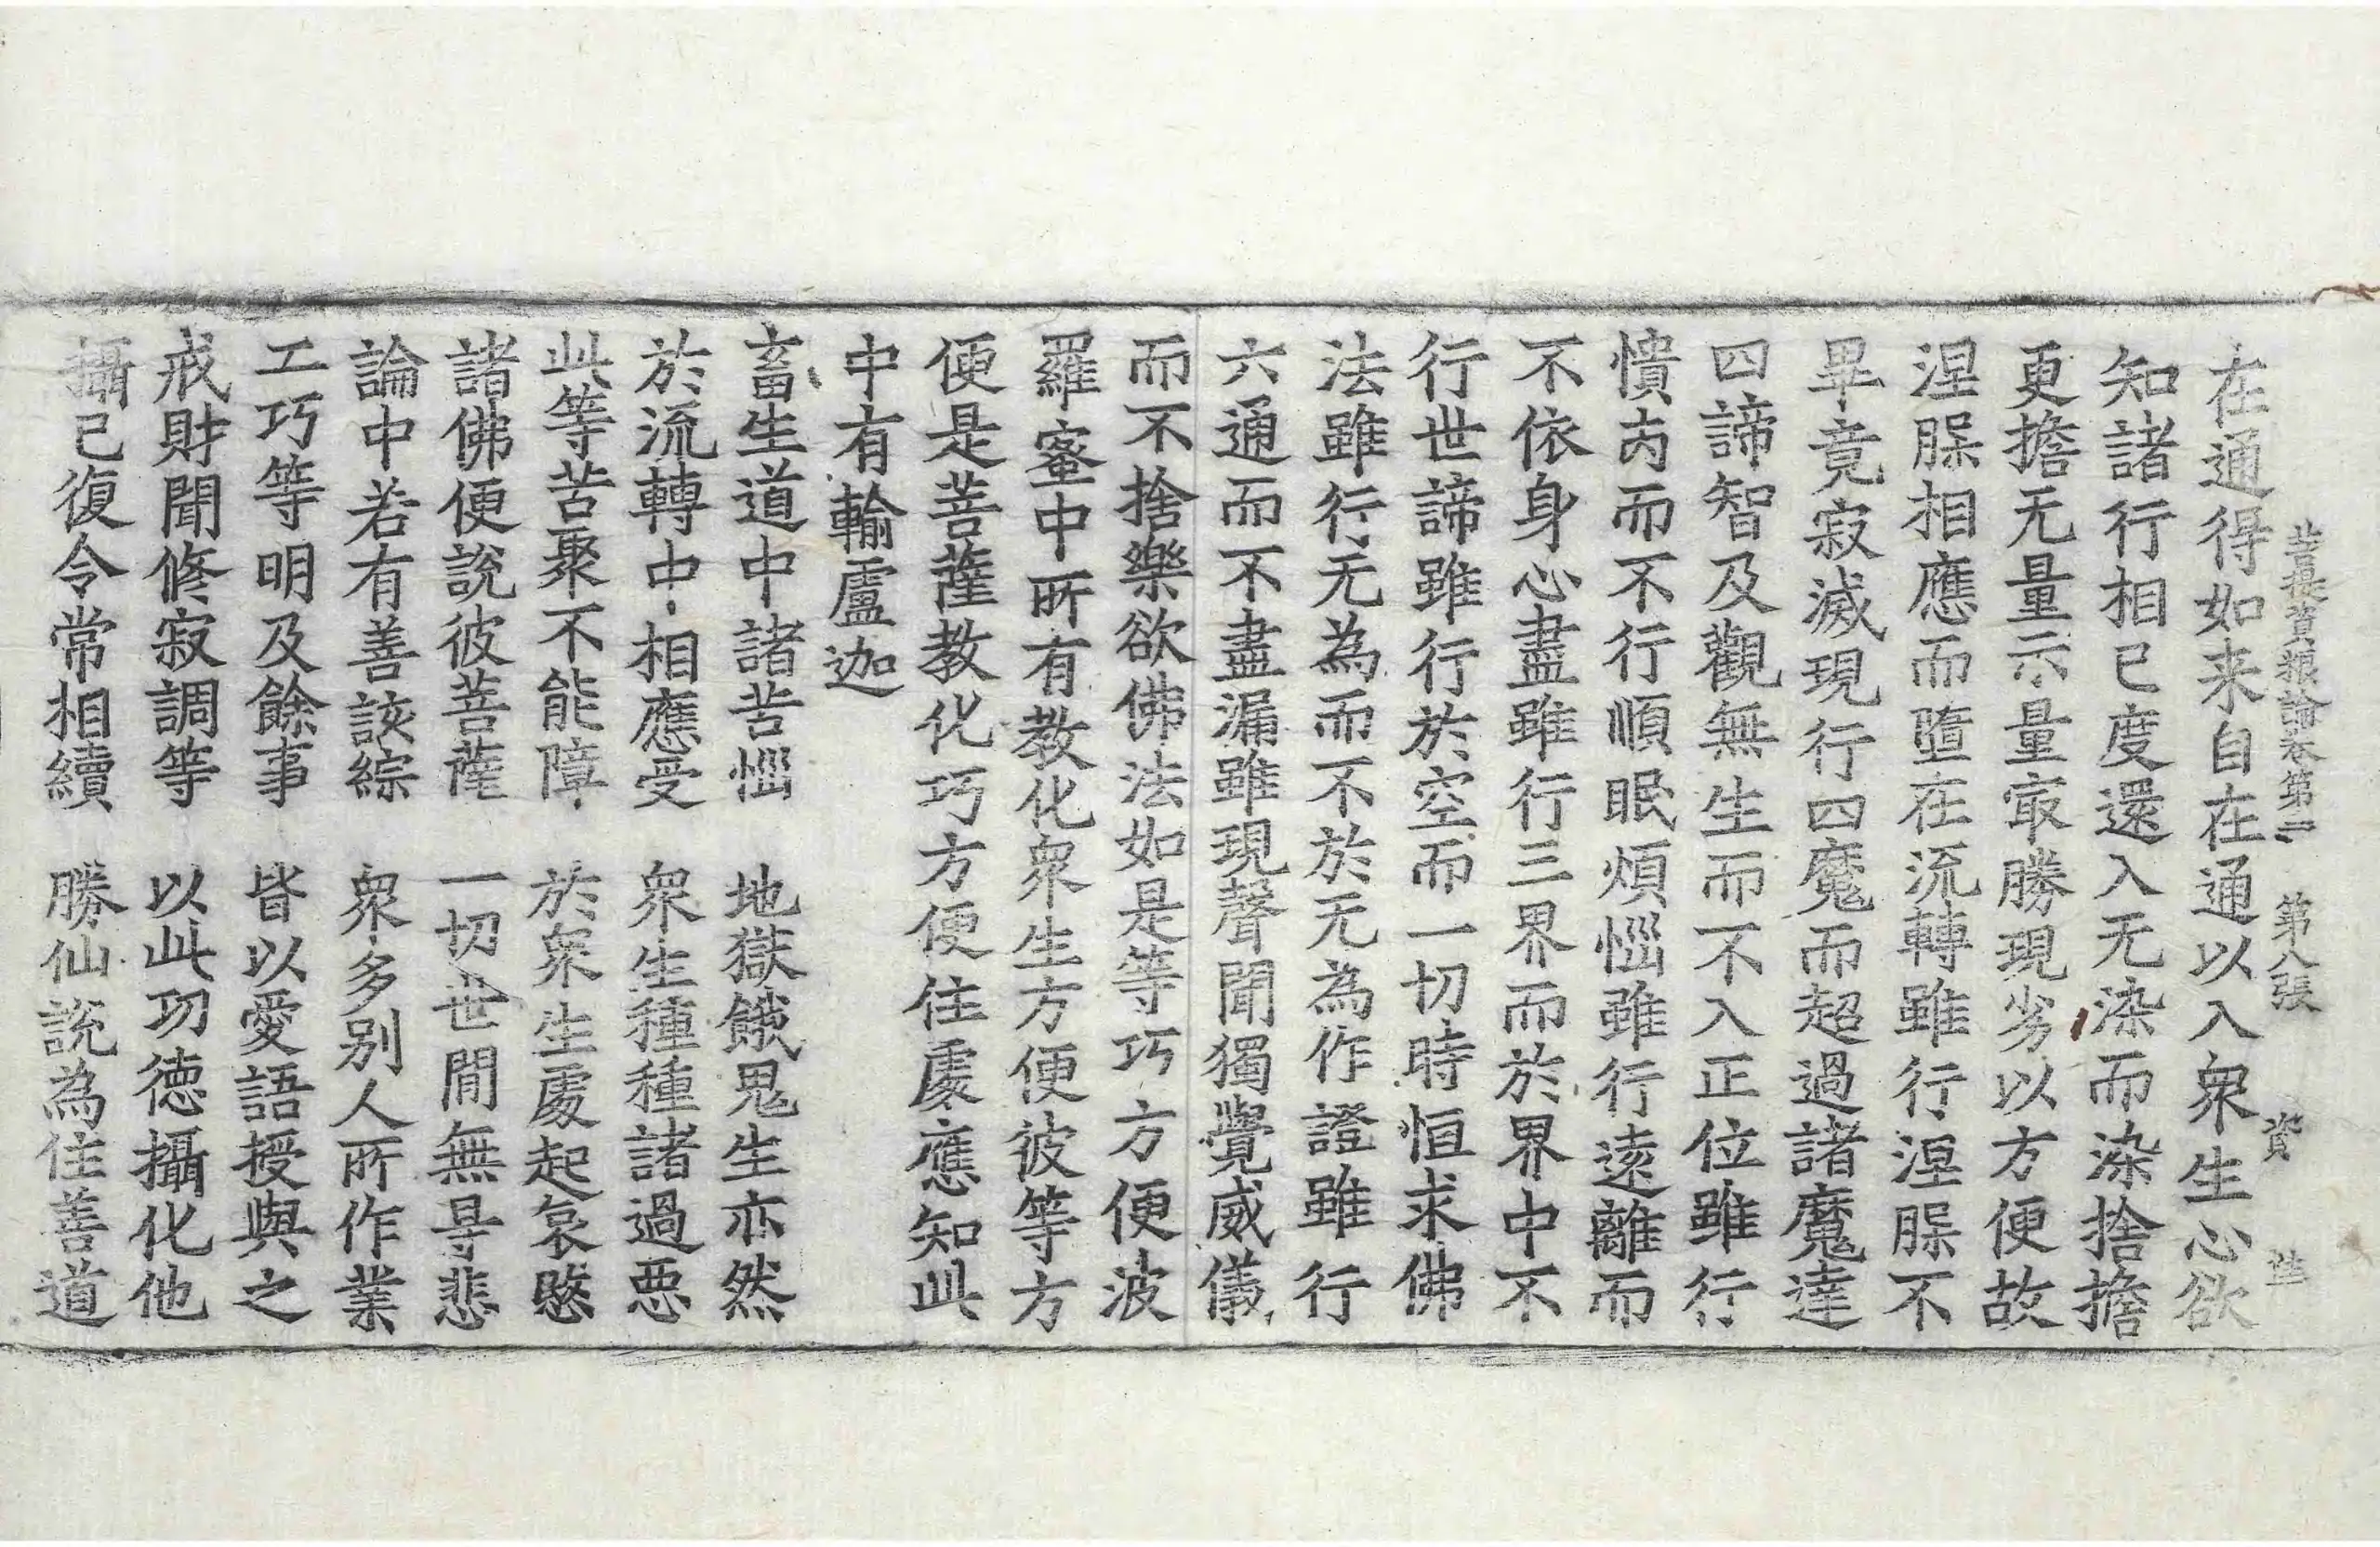 菩提資糧論卷第二 第八張 資
在通得如来自在通以入衆生心欲
知諸行相已度還入无染而染捨擔
更擔无量示量㝡勝現劣以方便故
涅槃相應而墮在流轉雖行涅槃不
畢竟寂滅現行四魔而超過諸魔達
四諦智及觀無生而不入正位雖行
憒内而不行順眠煩惱雖行遠離而
不依身心盡雖行三界而於界中不
行世諦雖行於空而一切時恒求佛
法雖行无為而不於无為作證雖行
六通而不盡漏雖現聲聞獨覺威儀
而不捨樂欲佛法如是等巧方便波
羅蜜中所有教化衆生方便彼等方
便是菩薩教化巧方便住處應知此
中有輸盧迦
畜生道中諸苦惱 地獄餓鬼生亦然
於流轉中相應受 衆生種種諸過惡
此等苦聚不能障 於衆生處起哀愍
諸佛便說彼菩薩 一切世間無㝵悲
論中若有善該綜 衆多别人所作業
工巧等明及餘事 皆以愛語授與之
戒財聞修寂調等 以此功德攝化他
攝已復令常相續 勝仙說為住善道